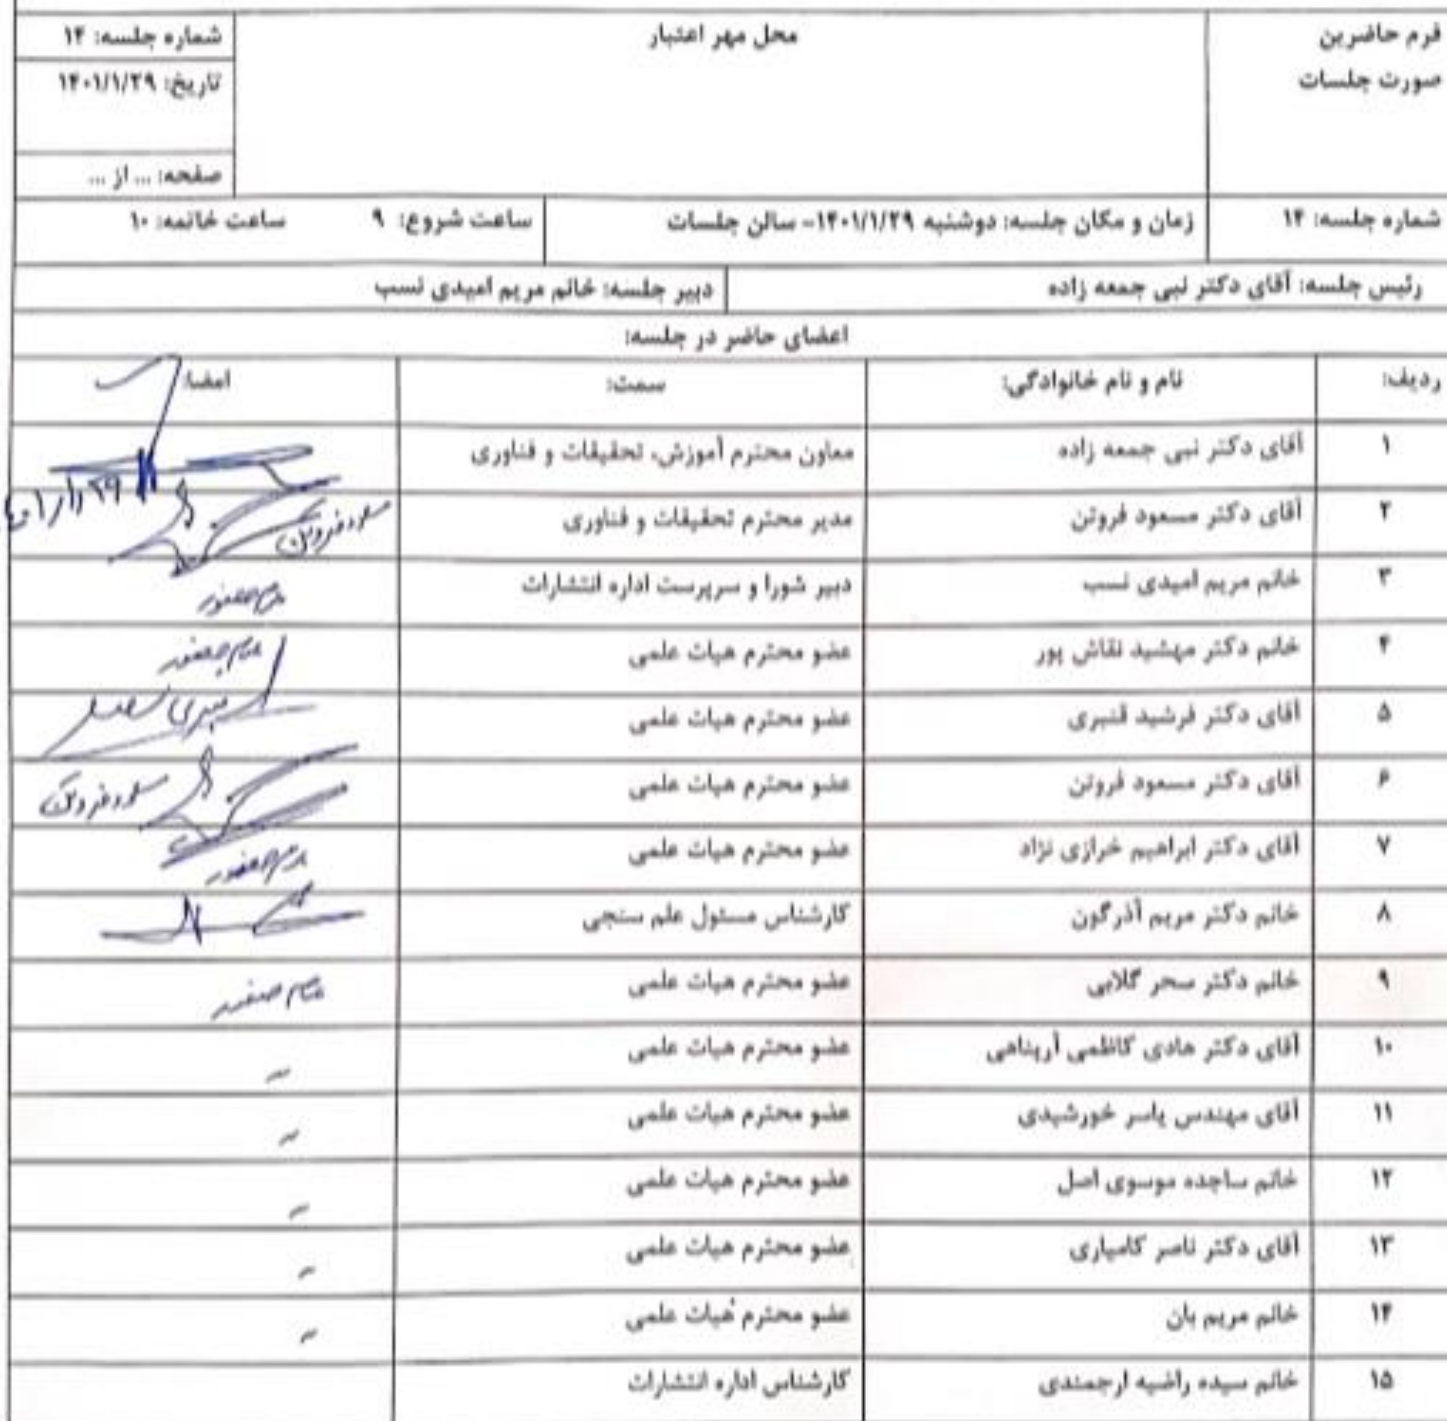 فرم حاضرین
صورت جلسات
محل مهر اعتبار
شماره جلسه: ۱۴
تاریخ: ۱۴۰۱/۱/۲۹
صفحه: ... از ...
شماره جلسه: ۱۴ زمان و مکان جلسه: دوشنبه ۱۴۰۱/۱/۲۹- سالن جلسات ساعت شروع: ۹ ساعت خاتمه: ۱۰
رئیس جلسه: آقای دکتر نبی جمعه زاده دبیر جلسه: خانم مریم امیدی نسب
اعضای حاضر در جلسه:
ردیف: نام و نام خانوادگی: سمت: امضا:
۱ آقای دکتر نبی جمعه زاده معاون محترم آموزش، تحقیقات و فناوری
۲ آقای دکتر مسعود فروتن مدیر محترم تحقیقات و فناوری مسعود فروتن
۳ خانم مریم امیدی نسب دبیر شورا و سرپرست اداره انتشارات
۴ خانم دکتر مهشید نقاش پور عضو محترم هیات علمی
۵ آقای دکتر فرشید قنبری عضو محترم هیات علمی
۶ آقای دکتر مسعود فروتن عضو محترم هیات علمی مسعود فروتن
۷ آقای دکتر ابراهیم خرازی نژاد عضو محترم هیات علمی
۸ خانم دکتر مریم آذرگون کارشناس مسئول علم سنجی
۹ خانم دکتر سحر گلابی عضو محترم هیات علمی
۱۰ آقای دکتر هادی کاظمی آرپناهی عضو محترم هیات علمی
۱۱ آقای مهندس یاسر خورشیدی عضو محترم هیات علمی
۱۲ خانم ساجده موسوی اصل عضو محترم هیات علمی
۱۳ آقای دکتر ناصر کامیاری عضو محترم هیات علمی
۱۴ خانم مریم بان عضو محترم هیات علمی
۱۵ خانم سیده راضیه ارجمندی کارشناس اداره انتشارات